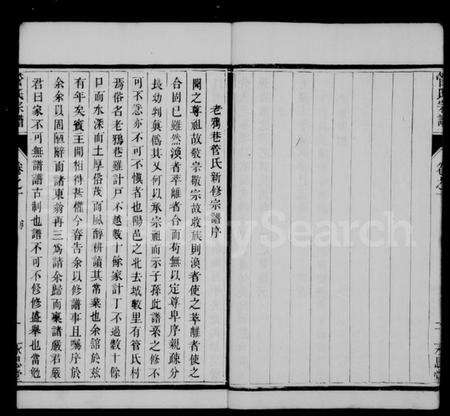 老鴉巷管氏新修宗譜序
聞之尊祖故敬宗敬宗故收族則渙者使之萃離者使之
合固已雖然渙者萃離者合而苟無以定尊卑序親疎分
長幼判與僞其又何以承宗祖而示子孫此譜築之修不
可不急亦不可不慎者也陽邑之北去城數里有管氏村
焉俗名老鴉巷羅計戶不越數十餘家計丁不過數十餘
口而水深而土厚俗茂而風醇耕讀其常業也余館於茲
有年矣賓主間相得甚懽今春告余以修譜事且囑序於
余余以固陋辭而諸東翁再三爲請余歸而稟諸嚴君嚴
君曰家不可無譜譜古制也譜不可不修修盛舉也當勉
管氏宗譜
卷之一
序
一
管氏宗譜
卷之一
MySearch